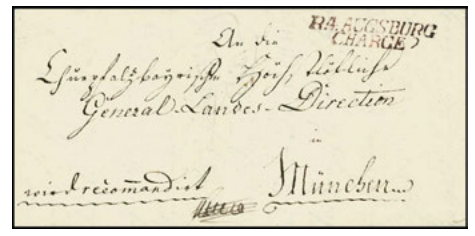 R.4. AUGSBURG
CHARGÉ
An die
Churpfalzbayrische Hoch Löbliche
General-Landes-Direction
in
wird recomandirt
München